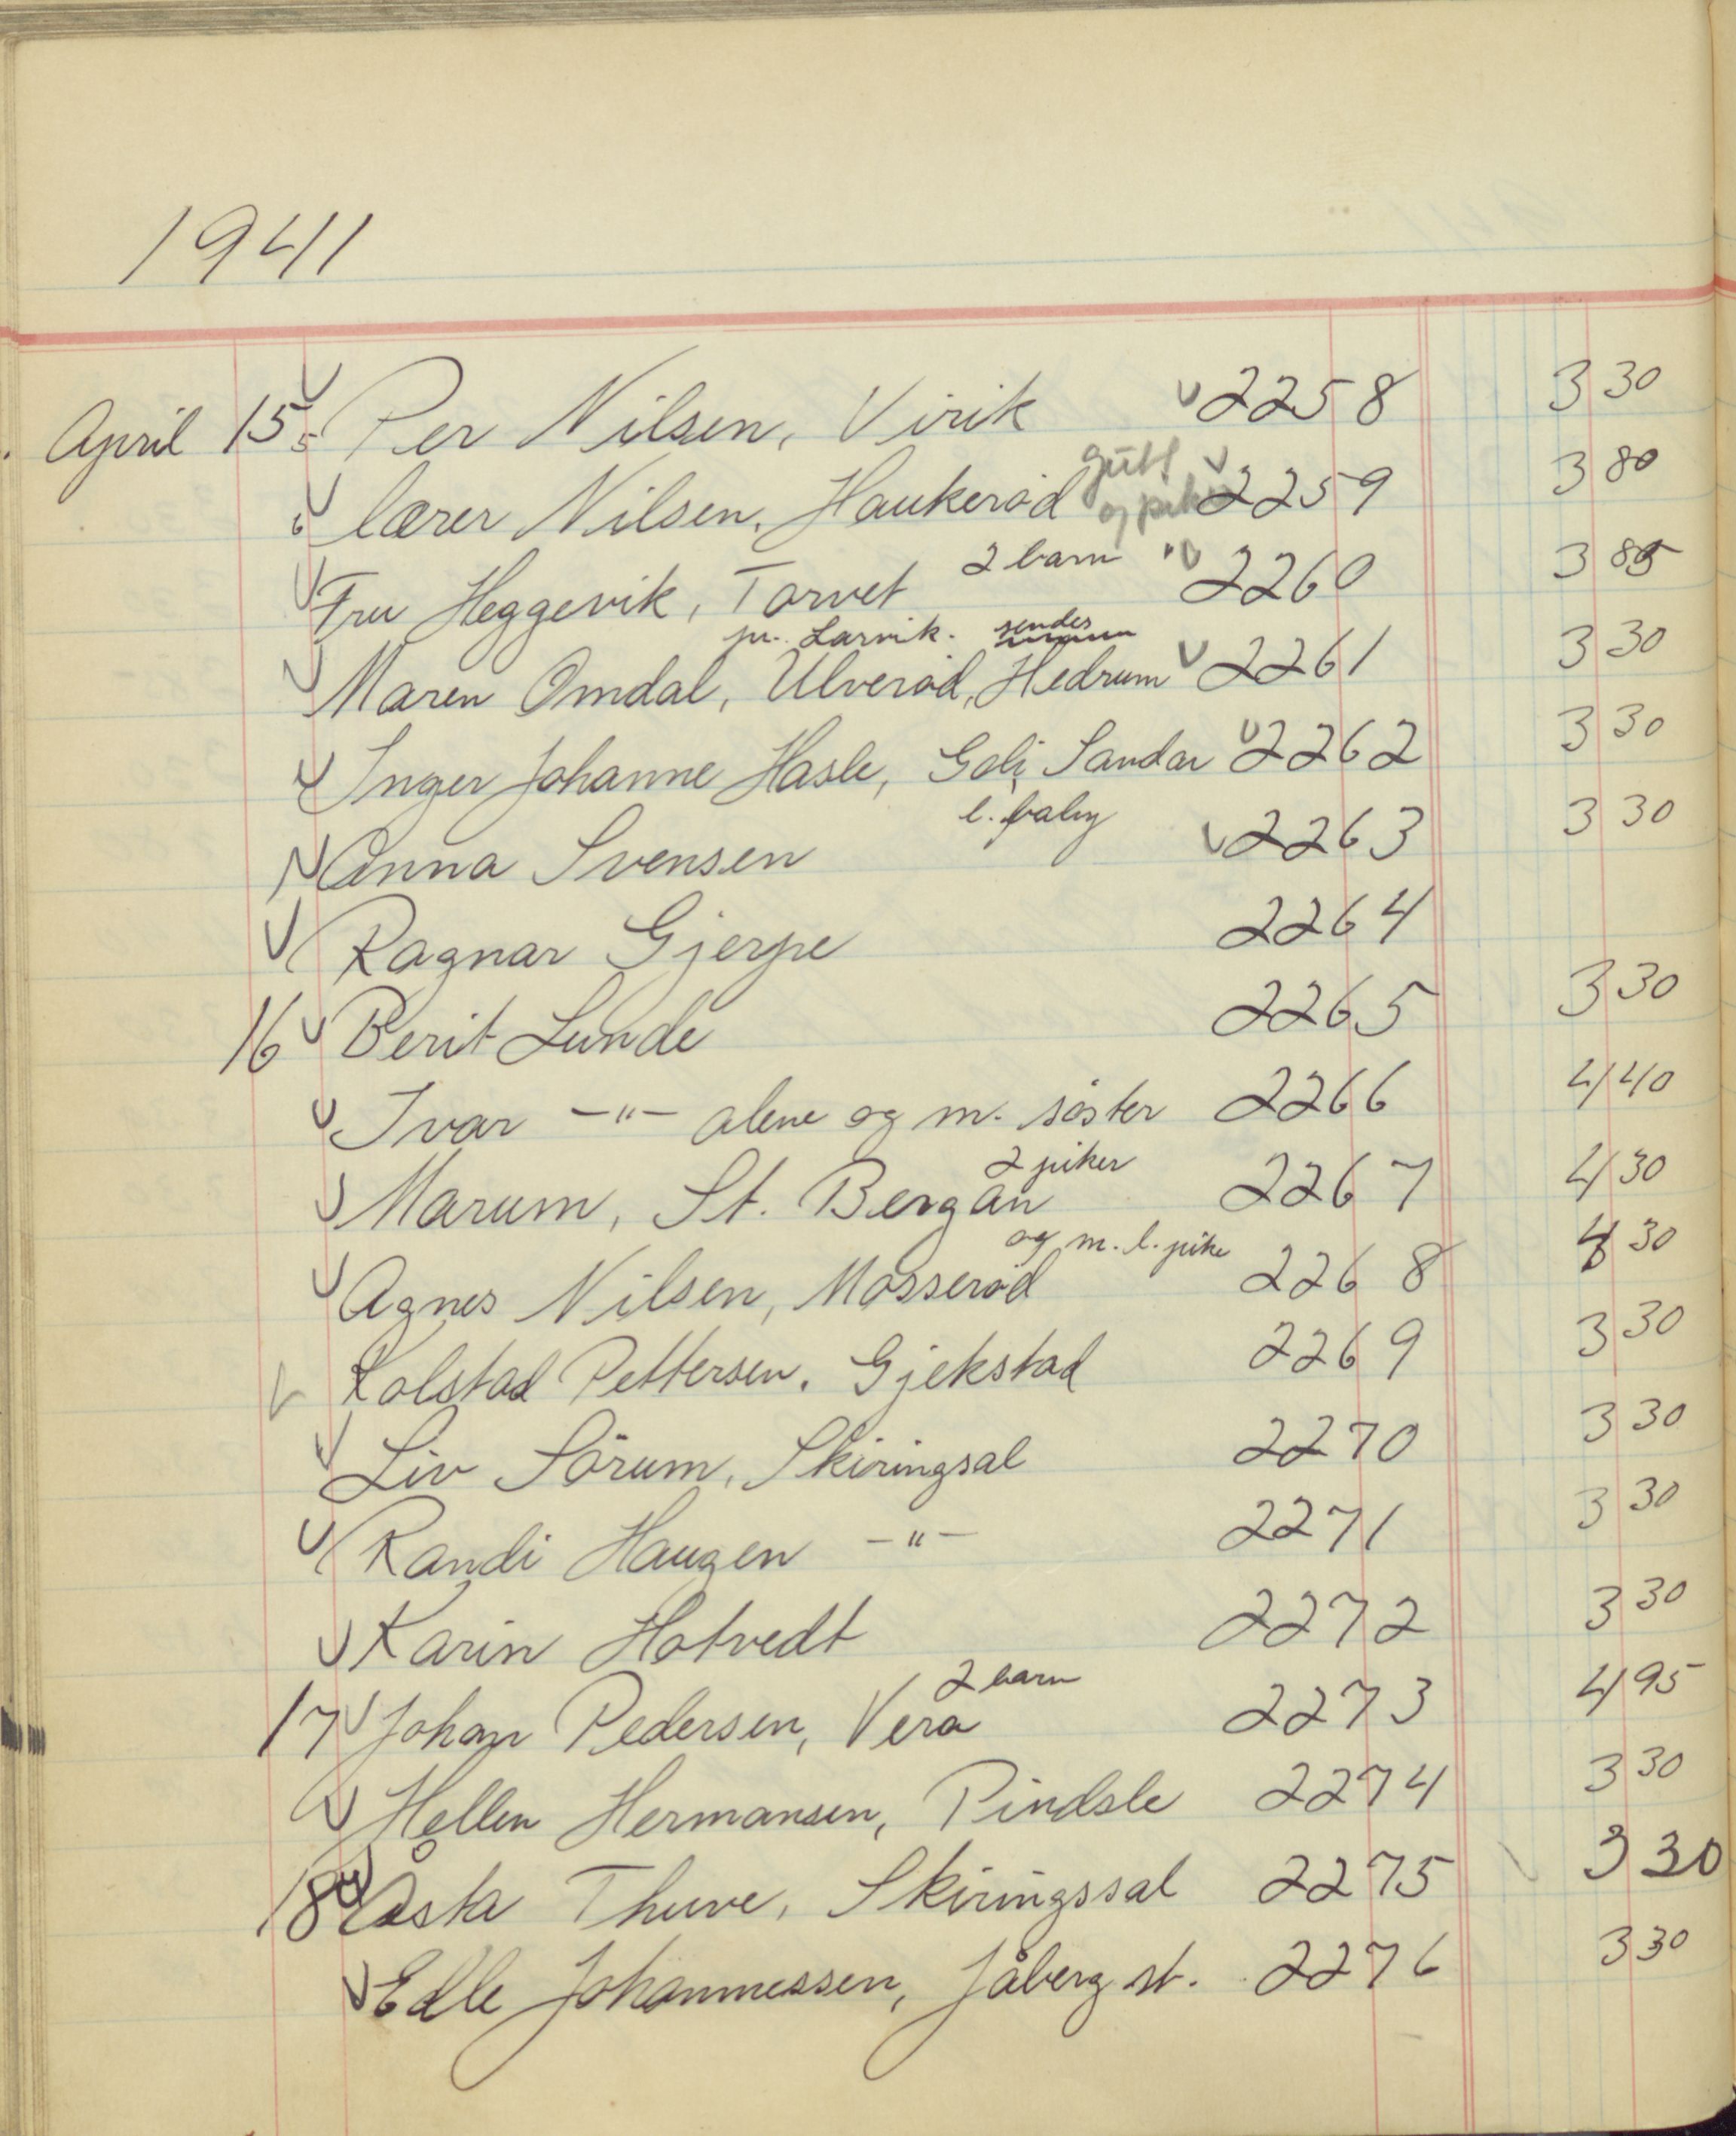 1941
April 15 5 Per Nilsen, Virik 2258 3 30
gutt
6 lærer Nilsen, Haukeröd og pike 2259 3 80
2 barn
Fru Heggevik, Torvet 2260 3 85
pr. Larvik. sendes
Maren Omdal, Ulveröd, Hedrum 2261 3 30
Inger Johanne Hasle, Goli, Sandar 2262 3 30
l. baby
Anna Svensen 2263 3 30
Ragnar Gjerpe 2264
16 Berit Lunde 2265 3 30
Ivar -"- alene og m. söster 2266 4 40
2 piker
Marum, St. Bergan 2267 4 30
og m. l. pike
Agnes Nilsen, Mosseröd 2268 4 30
Kolstad Pettersen. Gjekstad 2269 3 30
Liv Sörum, Skiringsal 2270 3 30
Randi Haugen -"- 2271 3 30
Karin Hotvedt 2272 3 30
2 barn
17 Johan Pedersen, Vera 2273 4 95
Hellen Hermansen, Pindsle 2274 3 30
18 Åsta Thuve, Skiringssal 2275 3 30
Edle Johannessen, Jåberg st. 2276 3 30